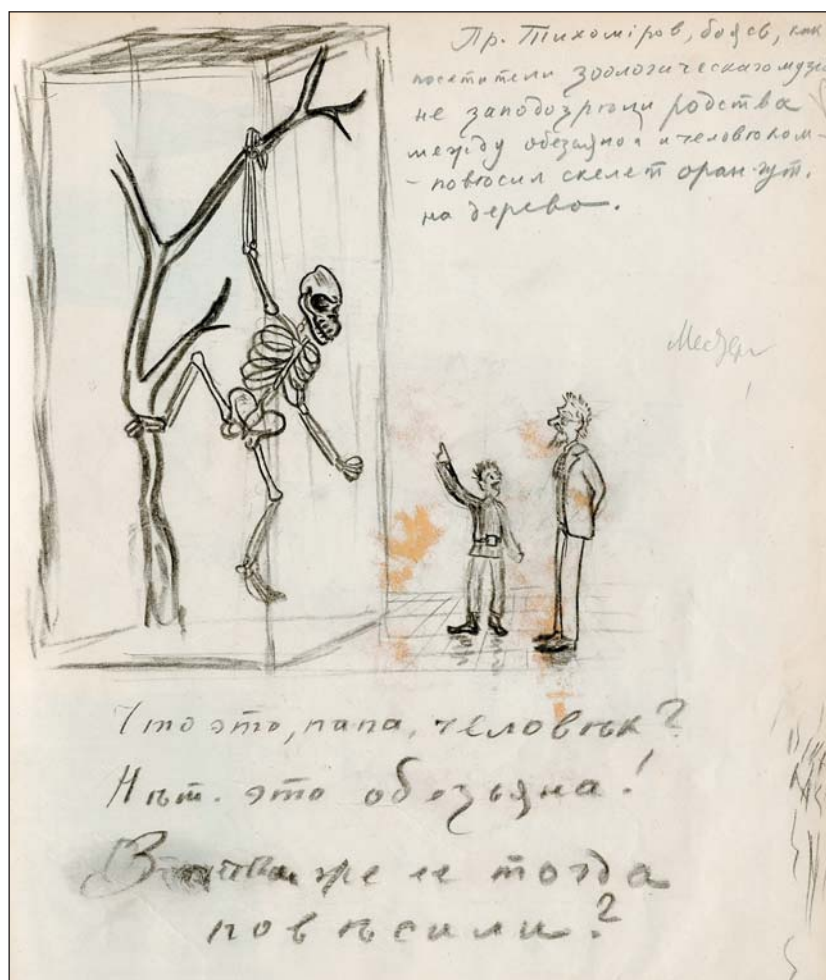 Пр. Тихоміров, боясь, как
посетители зоологическаго музея
не заподозрѣли родства
между обезьяной и человѣком—
— повѣсил скелет оран-гут.
на дерево.
Что это, папа, человѣк?
Нѣт. это обезьяна!
же ее тогда
повѣсили?